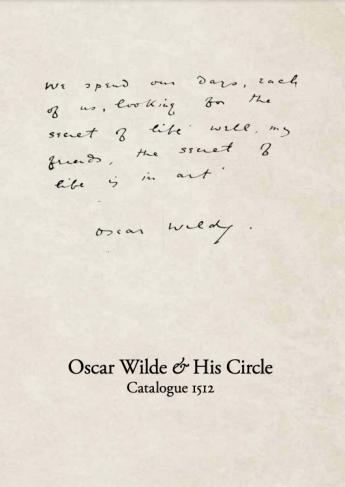 We spend our days, each
of us, looking for the
secret of life. Well, my
friends, the secret of
life is in art.
Oscar Wilde.
Oscar Wilde & His Circle
Catalogue 1512